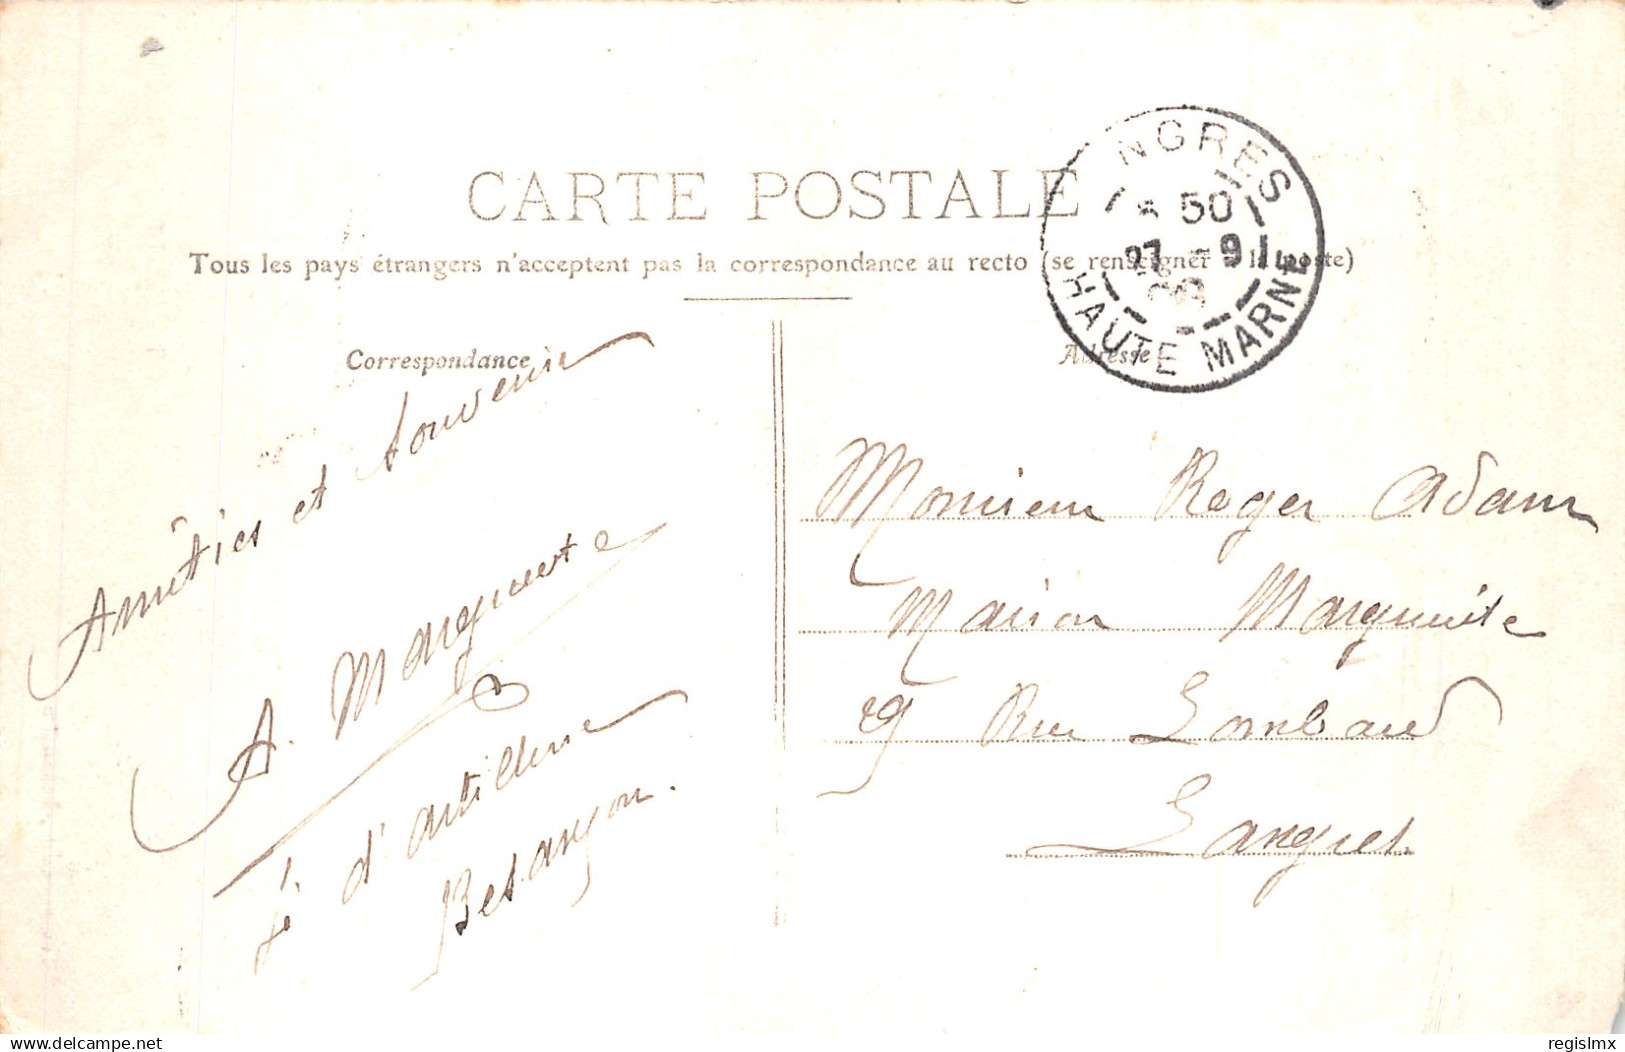 CARTE POSTALE
Tous les pays étrangers n'acceptent pas la correspondance au recto (se renseigner à la poste)
NGRES
* 50
27 -9
09
HAUTE MARNE
Correspondance
Adresse
Amitiés et souvenir
A. Marguerite
d'artillerie
Besançon.
Monsieur Roger Adam
Maison Marguerite
9 Rue Lombard
Langres
www.delcampe.net
regislmx